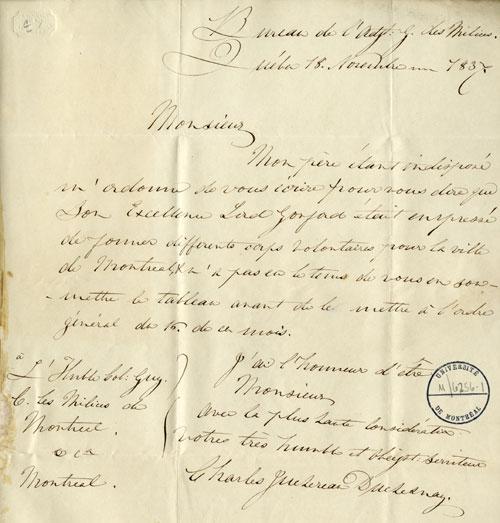 Bureau de l'Adjt. G. des Milices.
Québec 18. Novembre 1837
Monsieur
Mon père étant indisposé
m'ordonne de vous écrire pour vous dire que
Son Excellence Lord Gosford était empressé
de former differents corps volontaires pour la ville
de Montreal & n'a pas eu le tems de vous en sou-
-mettre le tableau avant de le mettre à l'ordre
général du 16. de ce mois.
J'ai l'honneur d'être
Monsieur
avec la plus haute Considération
votre très humble et obéigst. Serviteur
Charles Juchereau Duchesnay.
à
L'Hnble Col: Guy.
C. des Milices de
Montreal.
&c &c
Montreal.
UNIVERSITÉ
M 6256-1
DE MONTRÉAL